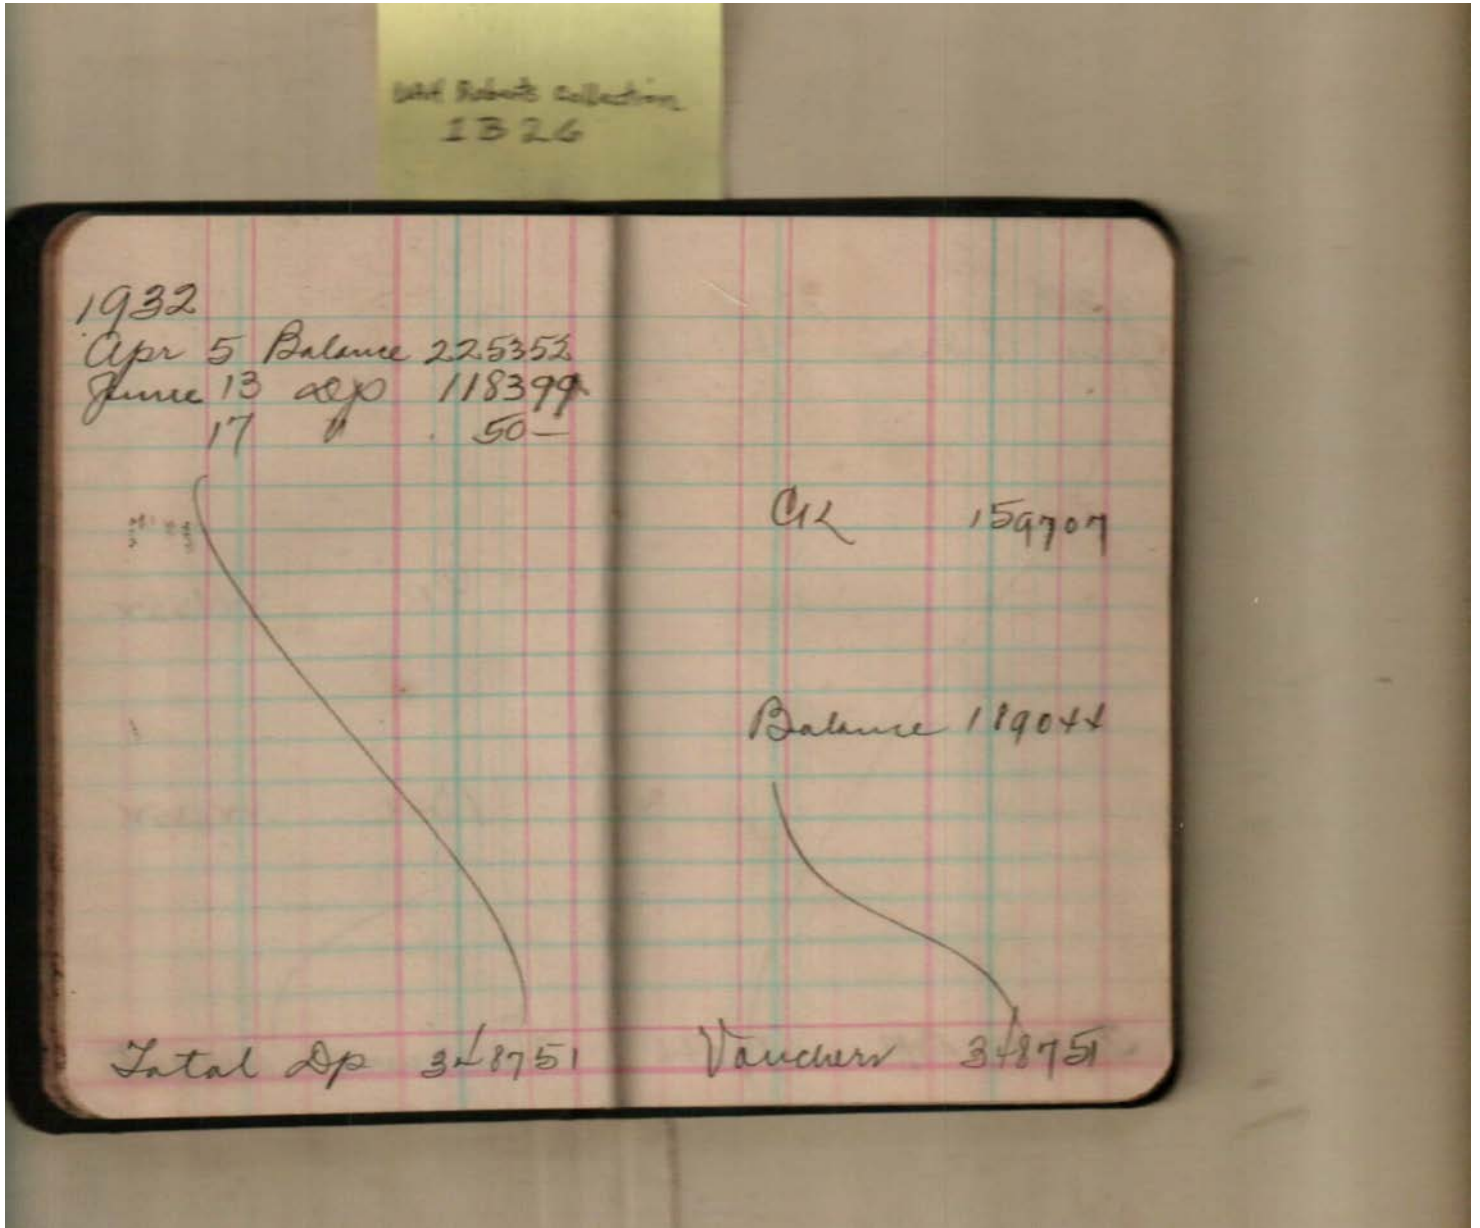 UAH Roberts Collection
1B26
1932
Apr 5 Balance 225352
June 13 Dp 118399
17 " 50 —
Total Dp 348751
Ck 159707
Balance 189044
Vouchers 348751